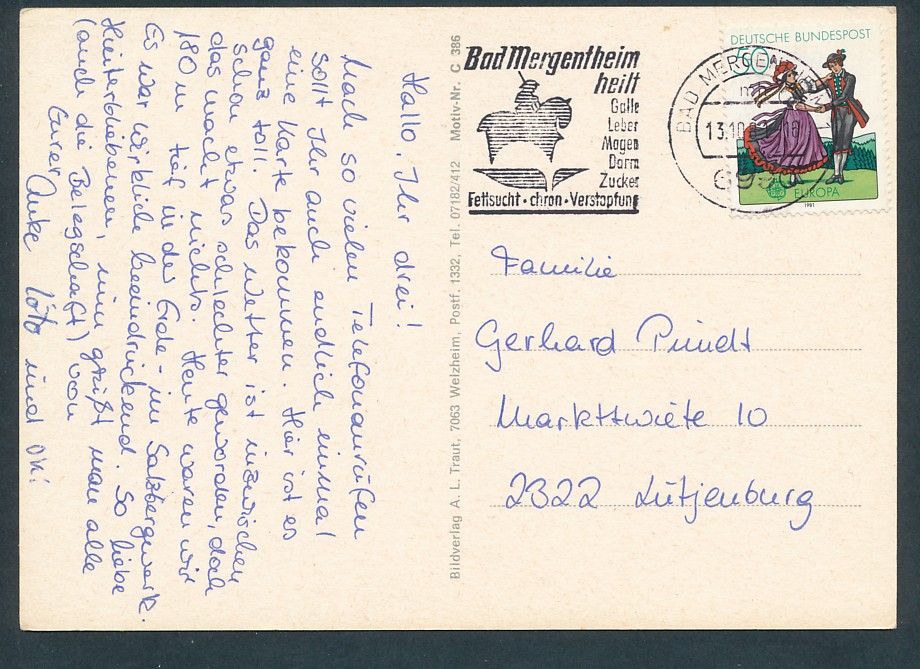 Hallo, Ihr drei!
Nach so vielen Telefonanrufen
sollt Ihr auch endlich einmal
eine Karte bekommen. Hier ist es
ganz toll. Das Wetter ist inzwischen
schon etwas schlechter geworden, doch
das macht nichts. Heute waren wir
180 m tief in der Erde - im Salzbergwerk.
Es war wirklich beeindruckend. So liebe
Hinterbliebenen, nun grüßt man alle
(auch die Belegschaft) von
Eurer Anke
und
Bildverlag A. L. Traut, 7063 Welzheim, Postf. 1332, Tel. 07182/412 Motiv-Nr. C 386
Bad Mergentheim
heilt
Galle
Leber
Magen
Darm
Zucker
Fettsucht · chron · Verstopfung
BAD MERGENTHEIM
13.10.
DEUTSCHE BUNDESPOST
50
EUROPA
1981
Familie
Gerhard Pündt
Marktwiete 10
2322 Lütjenburg